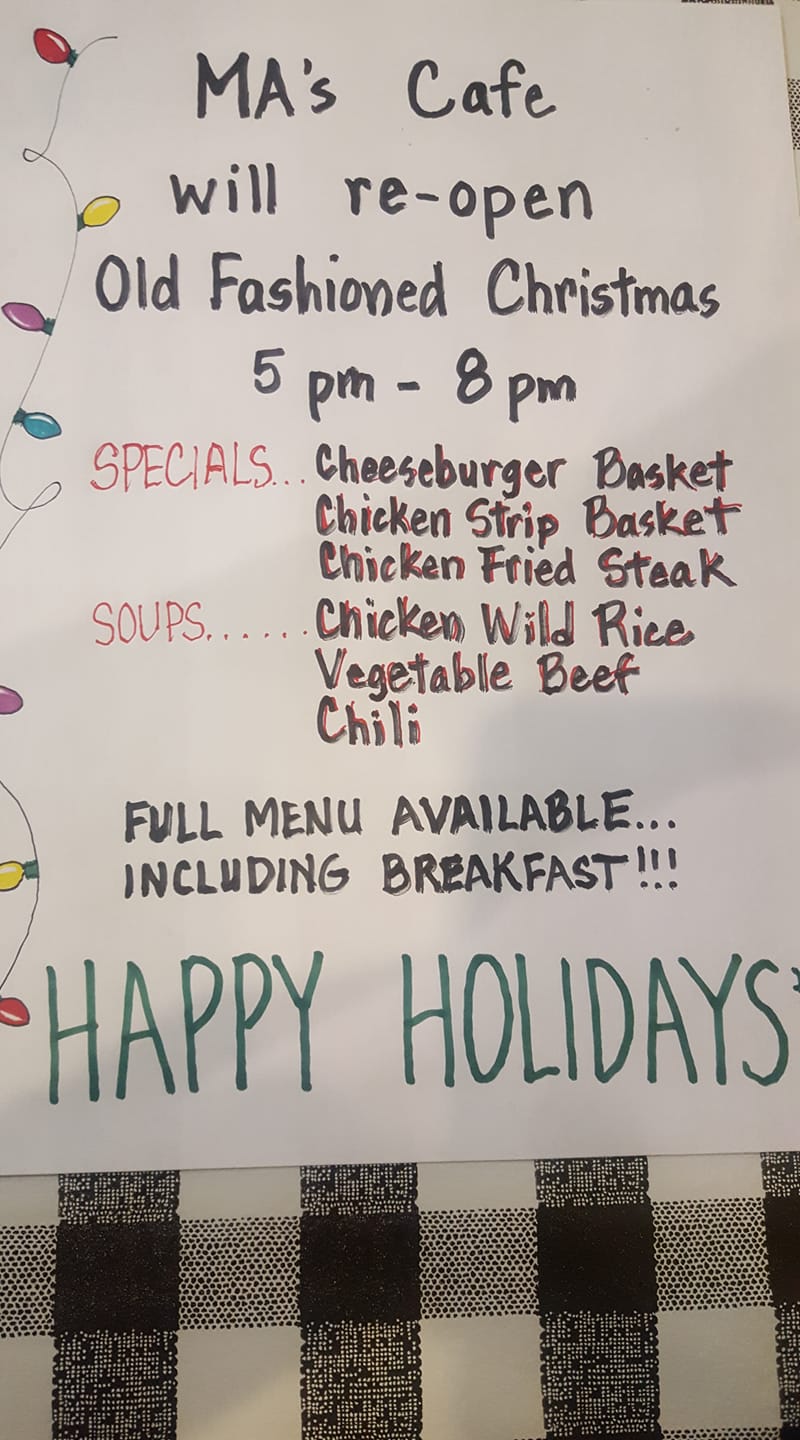 MA's Cafe
will re-open
Old Fashioned Christmas
5 pm - 8 pm
SPECIALS... Cheeseburger Basket
Chicken Strip Basket
Chicken Fried Steak
SOUPS...... Chicken Wild Rice
Vegetable Beef
Chili
FULL MENU AVAILABLE...
INCLUDING BREAKFAST!!!
HAPPY HOLIDAYS